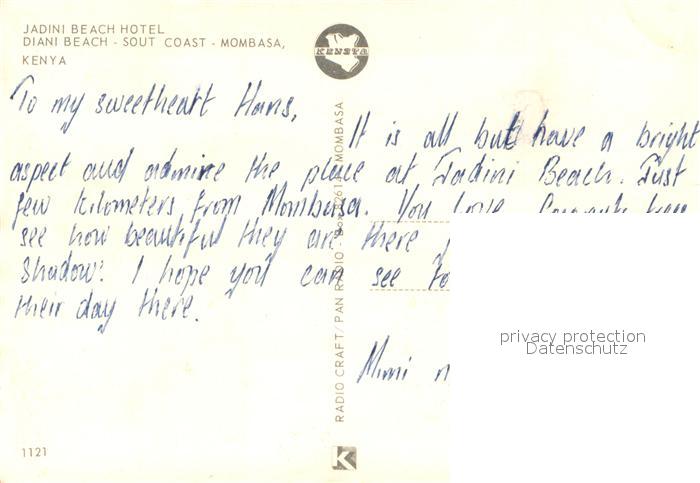 JADINI BEACH HOTEL
DIANI BEACH - SOUT COAST - MOMBASA,
KENYA
KENSTA
To my sweetheart Hans,
It is all but have a bright
aspect and admire the place at Jadini Beach. Just
few kilometers from Mombasa. You
see how beautiful they are there
Shadow. I hope you can see
their day there.
Mimi
RADIO CRAFT/PAN RADIO - MOMBASA
privacy protection
Datenschutz
1121
K